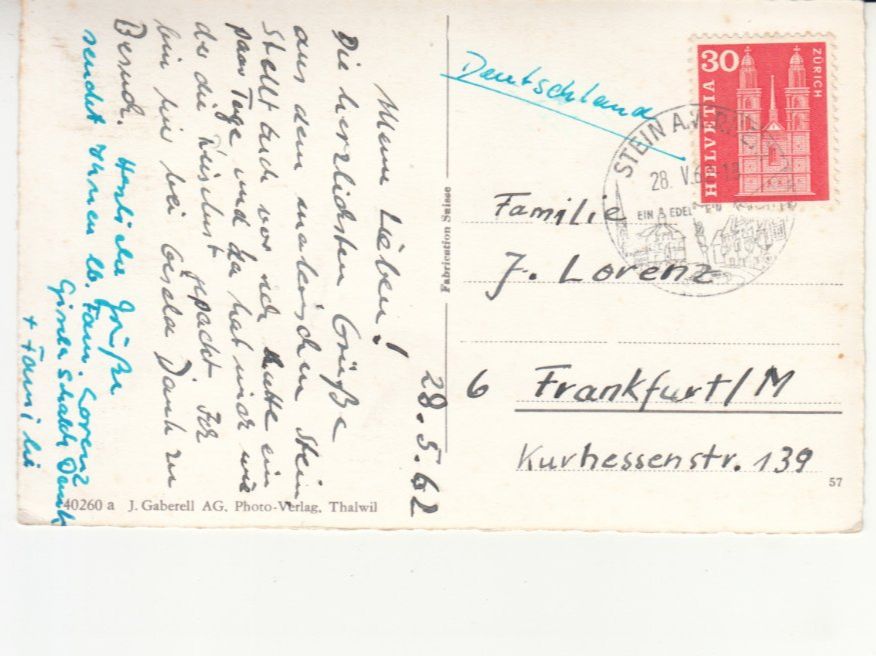 28.5.62
Mein Lieben!
Die herzlichsten Grüße
aus dem malerischen Stein
stellt euch vor ich hatte ein
paar Tage und da hat mich wie
der die Reiselust gepackt. Ich
bin hier bei Gisela Danh zu
Besuch. Herzliche Grüße
sendet Ihnen lb. Fam. Lorenz
Gisela
+ Familie
40260 a J. Gaberell AG, Photo-Verlag, Thalwil
Fabrication Suisse
Deutschland
HELVETIA 30
ZÜRICH
STEIN A.
28. V.6
EIN EDEL
Familie
J. Lorenz
6 Frankfurt/M
Kurhessenstr. 139
57